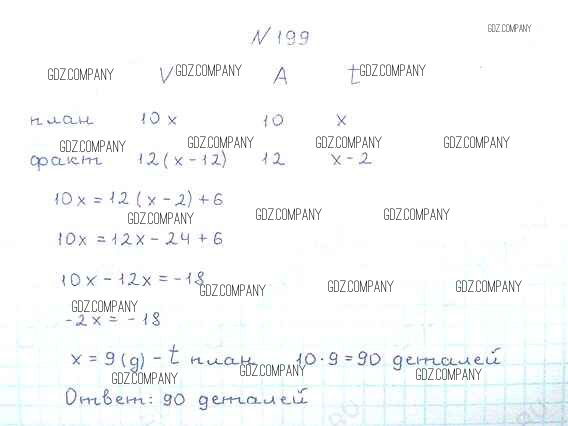 N 199
GDZ.COMPANY
GDZ.COMPANY V GDZ.COMPANY A t GDZ.COMPANY
план 10x 10 x
GDZ.COMPANY GDZ.COMPANY GDZ.COMPANY GDZ.COMPANY
факт 12(x-12) 12 x-2
10x = 12(x-2)+6
GDZ.COMPANY GDZ.COMPANY GDZ.COMPANY
10x = 12x-24+6
10x-12x=-18
GDZ.COMPANY GDZ.COMPANY GDZ.COMPANY
GDZ.COMPANY
-2x = -18
x = 9(g) - t план 10·9=90 деталей
GDZ.COMPANY GDZ.COMPANY GDZ.COMPANY
Ответ: 90 деталей